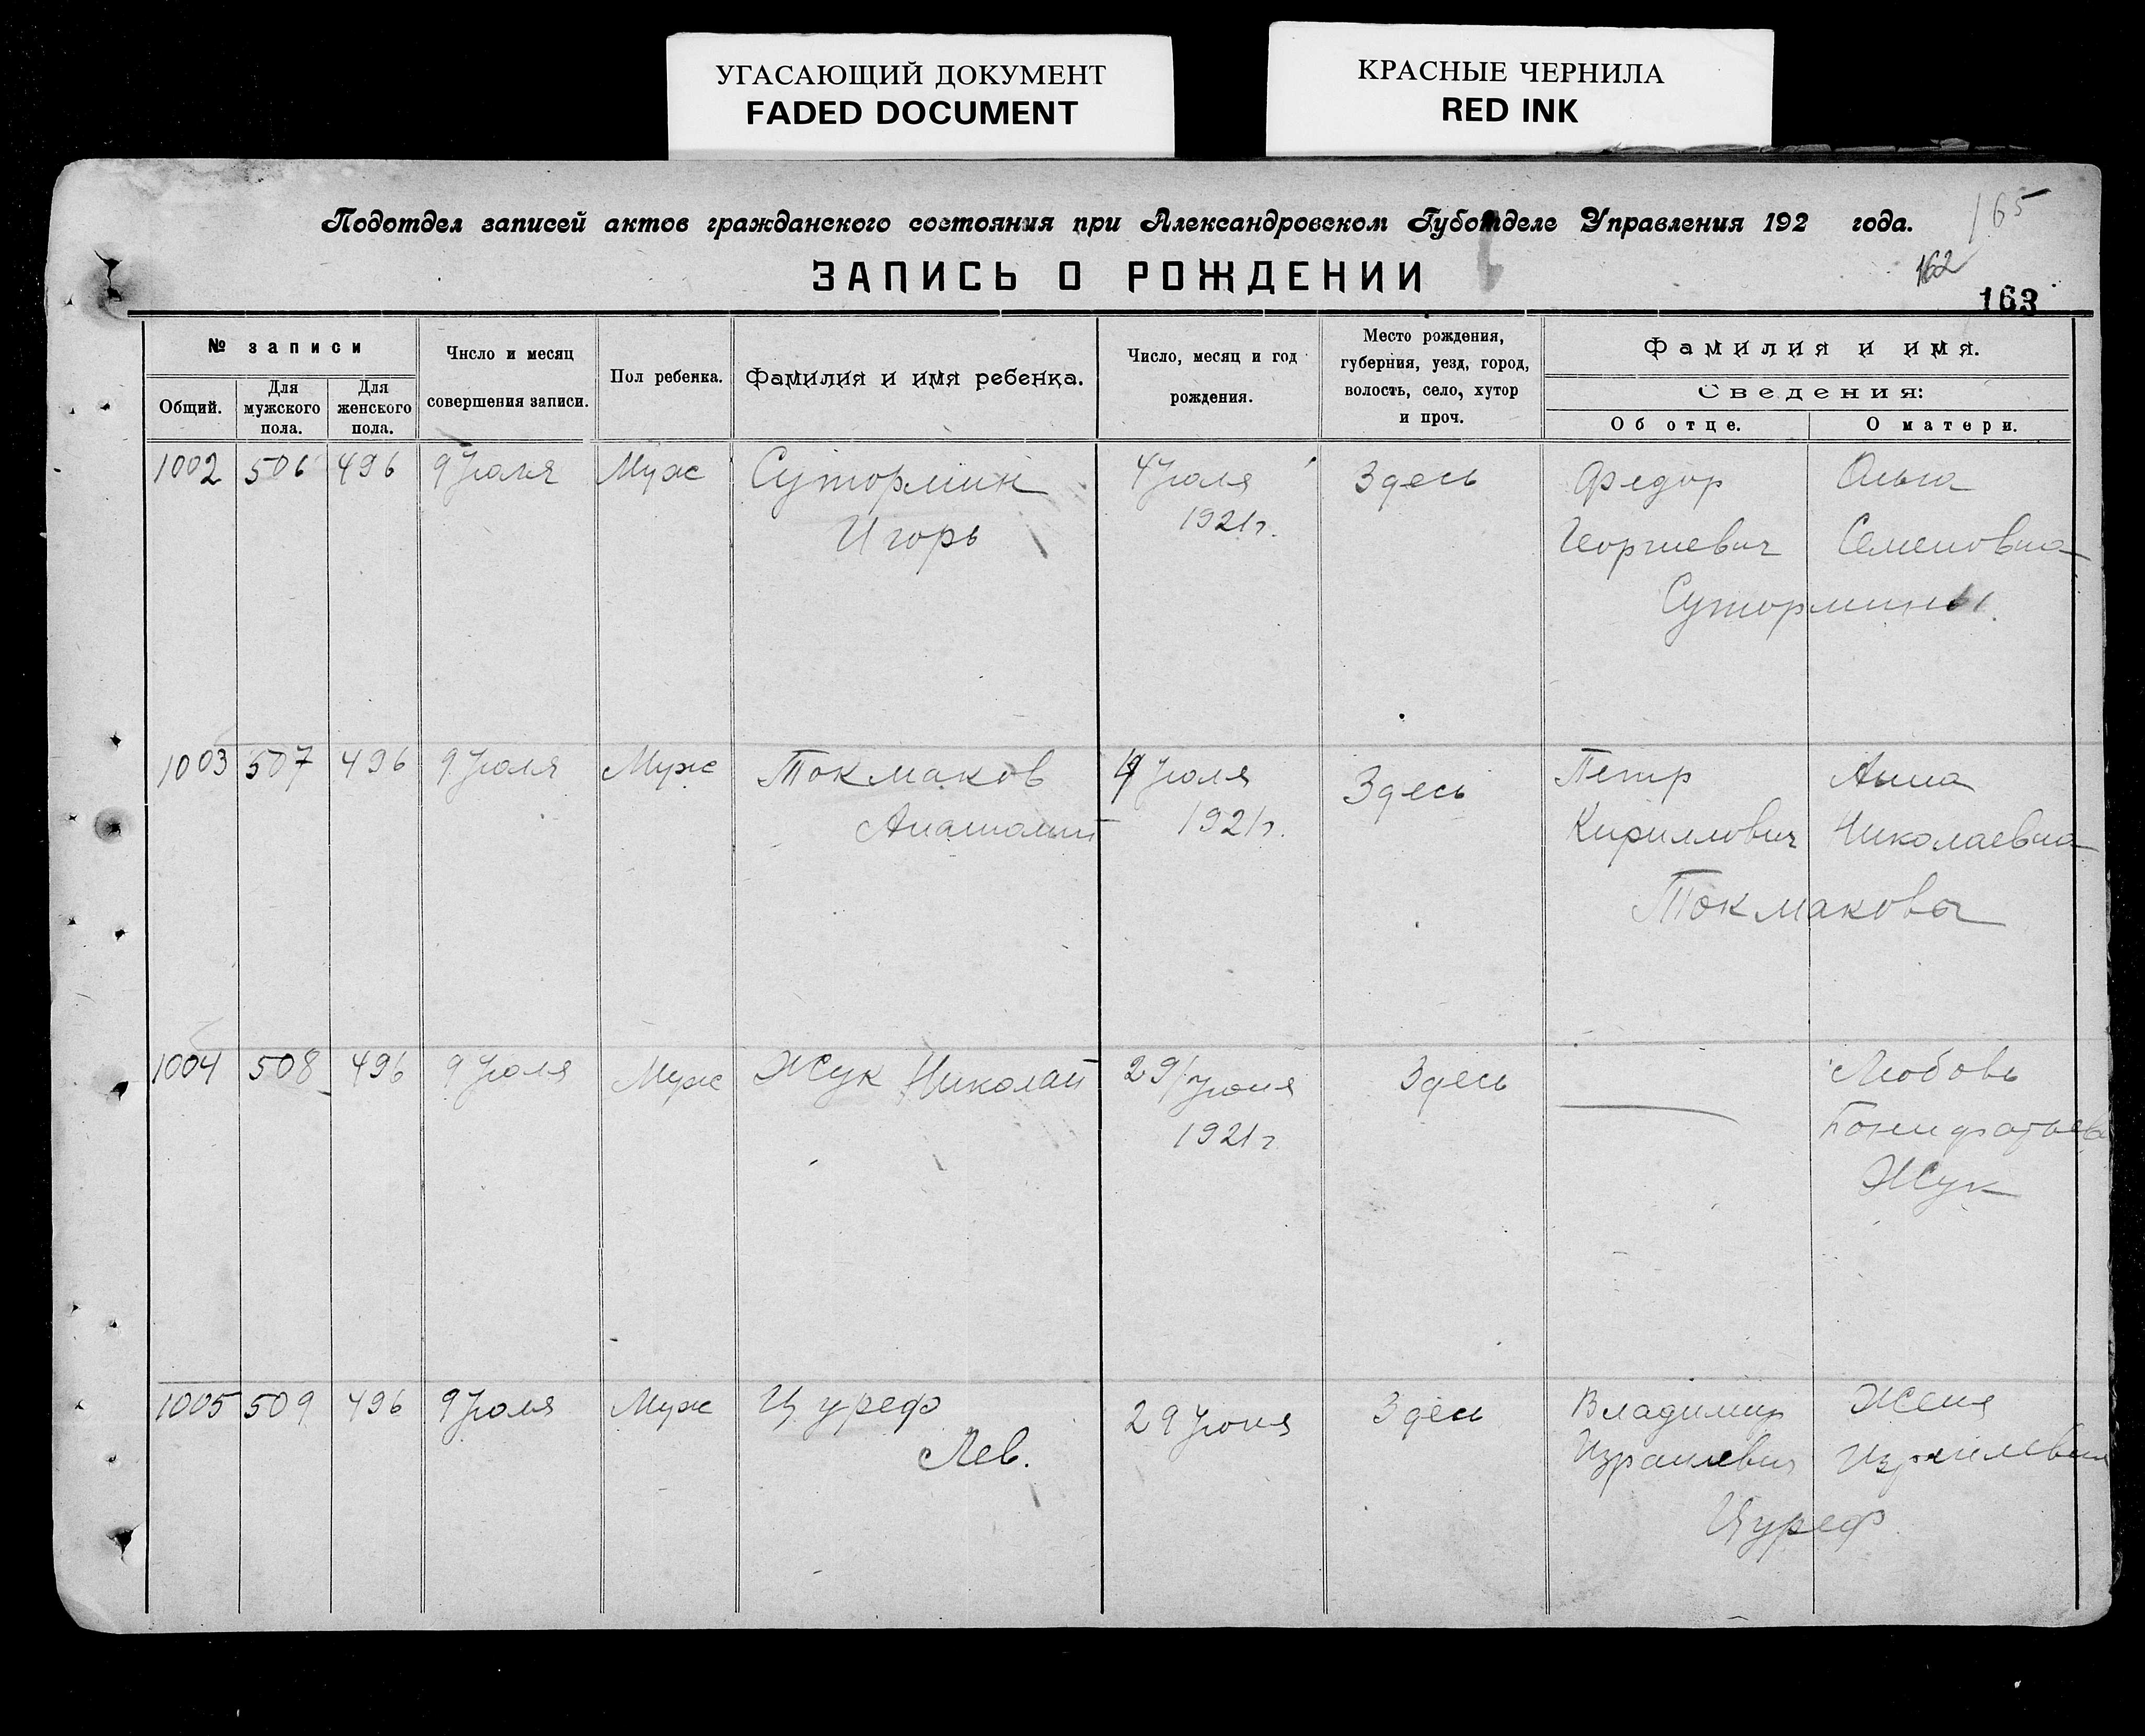 УГАСАЮЩИЙ ДОКУМЕНТ
FADED DOCUMENT
КРАСНЫЕ ЧЕРНИЛА
RED INK
165
Подотдел записей актов гражданского состояния при Александровском Губотделе Управления 192 года.
162
ЗАПИСЬ О РОЖДЕНИИ
163
№ записи
Общий.
Для мужского пола.
Для женского пола.
Число и месяц совершения записи.
Пол ребенка.
Фамилия и имя ребенка.
Число, месяц и год рождения.
Место рождения, губерния, уезд, город, волость, село, хутор и проч.
Фамилия и имя.
Сведения:
Об отце.
О матери.
1002 506 496 9 Июля Муж Сутормин 4 Июля Здесь Федор Ольга
Игорь 1921 г. Георгиевич Семеновна
Сутормины.
1003 507 496 9 Июля Муж Токмаков Июля Здесь Петр Анна
Анатолий 1921 г. Кириллович Николаевна
Токмаковы
1004 508 496 9 Июля Муж Жук Николай 29/Июня Здесь — Любовь
1921 г.
Жук
1005 509 496 9 Июля Муж Цуреф 29 Июня Здесь Владимир Женя
Лев. Израилевич
Цуреф